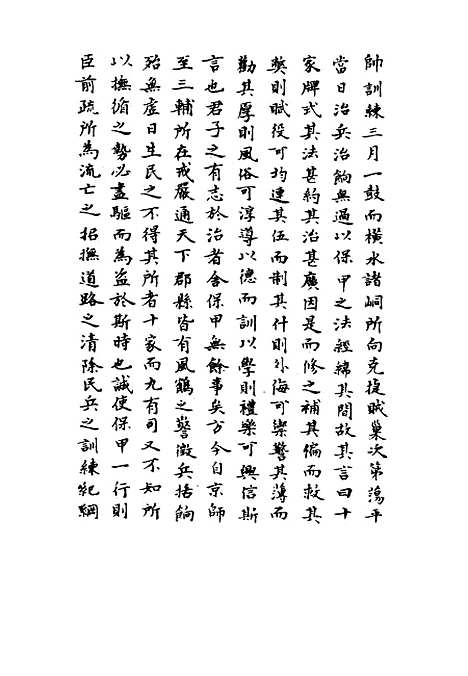 帥訓練三月一鼓而橫水諸峒所向克捷賊巢次第蕩平
當日治兵治餉無過以保甲之法經緯其間故其言曰十
家牌式其法甚約其治甚廣因是而修之補其偏而救其
獘則賦役可均連其伍而制其什則外侮可禦警其薄而
勸其厚則風俗可淳導以德而訓以學則禮樂可興信斯
言也君子之有志於治者舍保甲無餘事矣方今自京師
至三輔所在戒嚴通天下郡縣皆有風鶴之警徵兵括餉
殆無虛日生民之不得其所者十家而九有司又不知所
以撫循之勢必盡驅而為盜於斯時也誠使保甲一行則
臣前疏所為流亡之招撫道路之清除民兵之訓練紀綱